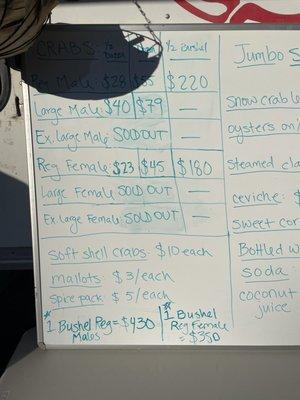 CRABS: 1/2 Dozen Dozen 1/2 Bushel
Reg Male: $28 $55 $220
Large Male: $40 $79 —
Ex. Large Male: SOLD OUT —
Reg Female: $23 $45 $180
Large Female SOLD OUT —
Ex. Large Female: SOLD OUT —
Soft shell crabs: $10 each
mallots: $3/each
Spice pack: $5/each
*1 Bushel Reg = $430
Males
*1 Bushel
Reg Female
= $350
Jumbo S
Snow crab le
oysters on
Steamed cla
ceviche: $
Sweet cor
Bottled w
soda
coconut
juice